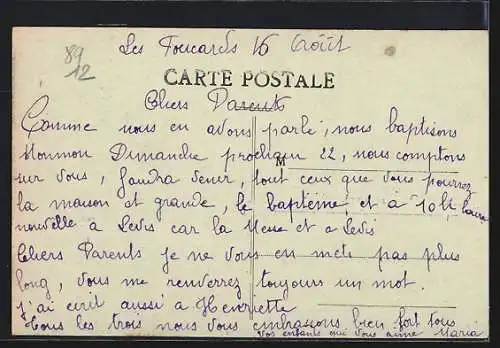 89
12
Les Foucards 16 Août
CARTE POSTALE
Chers Parents
Comme nous en avons parlé, nous baptisons
Monmon Dimanche prochain 22, nous comptons
M
sur vous, faudra venir, tout ceux que vous pourrez
la maison et grande, le baptême et à 10h heure
nouvelle à car la et a
Chers Parents je ne vous en mets pas plus
long, vous me renverrez toujours un mot.
j'ai écrit aussi a Henriette
Tous les trois nous vous embrassons bien fort tous
Vos enfants qui vous aime Maria